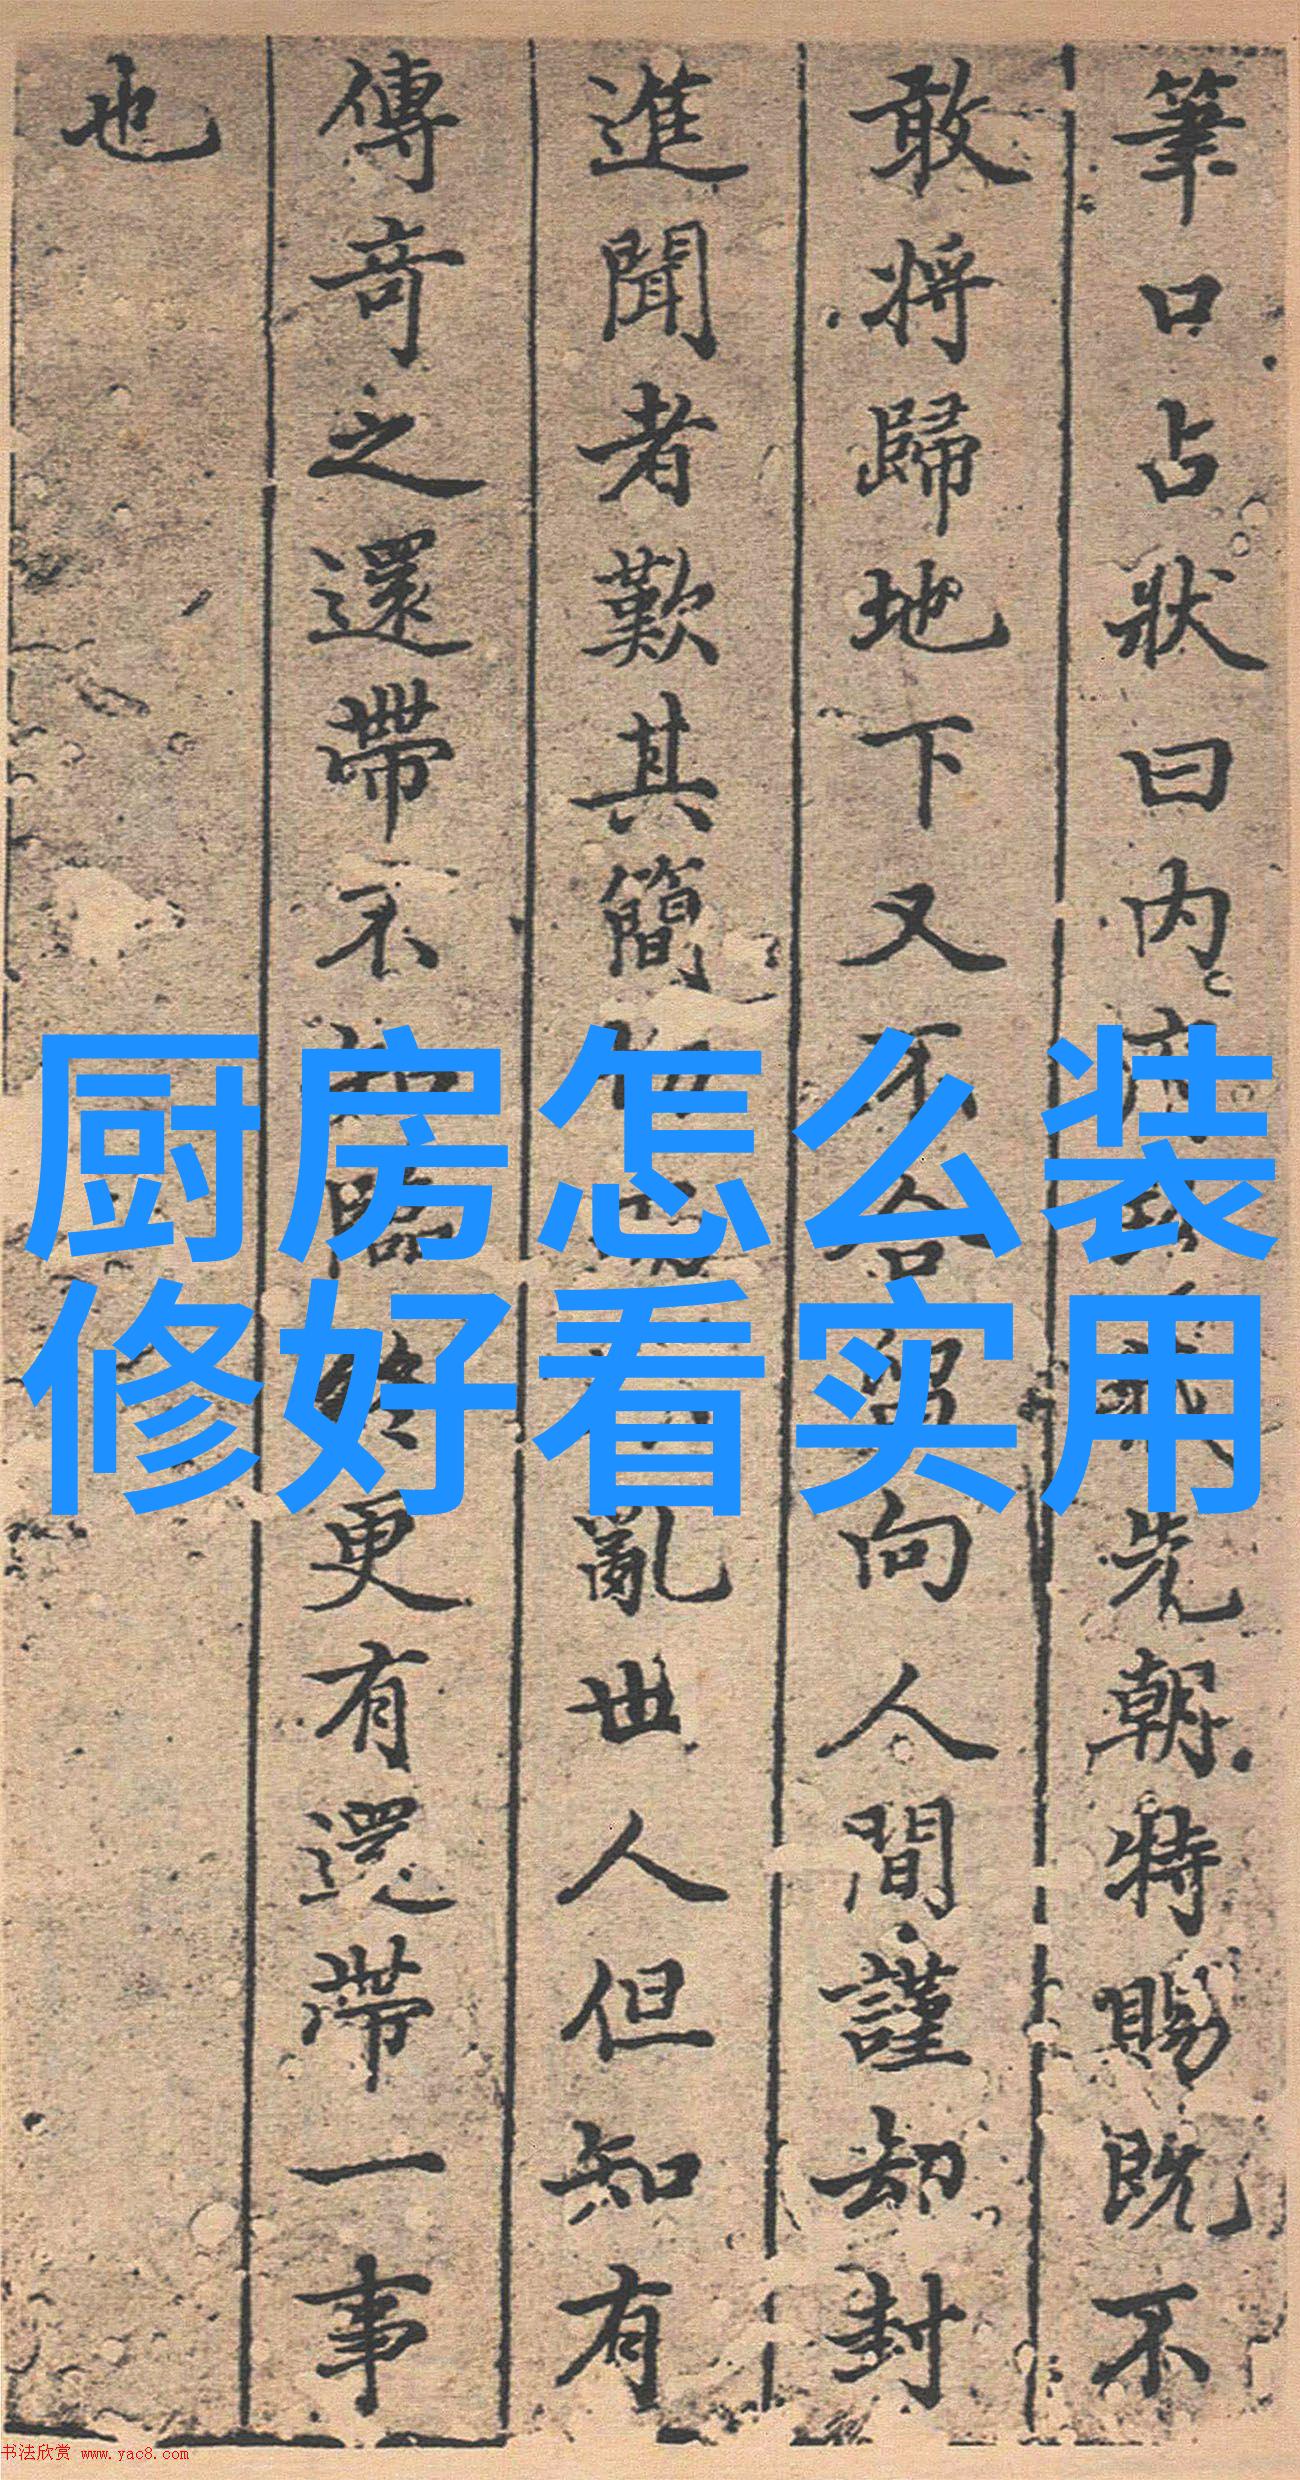 筆口占狀曰内先朝特賜既不
敢將歸地下又不合留向人間謹却封
進聞者歎其簡亂世人但知有
傳奇之還帶不知臨終更有還帶一事
也
厨房怎么装
修好看实用
书法欣赏 www.yac8.com